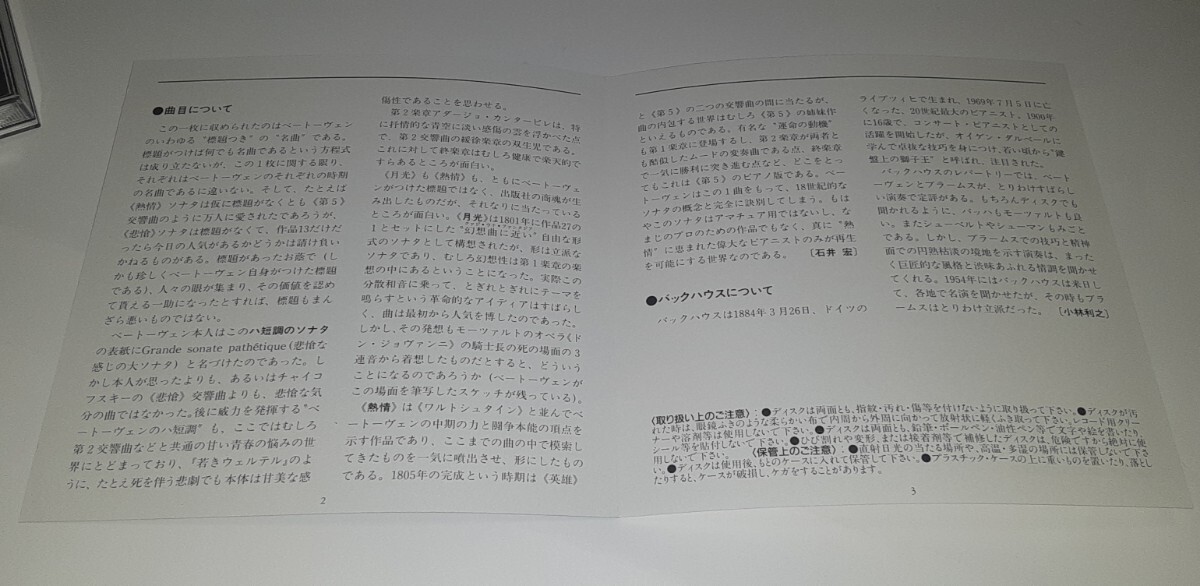 ●曲目について
この一枚に収められたのはベートーヴェン
のいわゆる“標題つき”の“名曲”である。
標題がつけば何でも名曲であるという方程式
は成り立たないが、この1枚に関する限り、
それぞれはベートーヴェンのそれぞれの時期
の名曲であるに違いない。そして、たとえば
《熱情》ソナタは仮に標題がなくとも《第5》
交響曲のように万人に愛されたであろうが、
《悲愴》ソナタは標題がなくて、作品13だけだ
ったら今日の人気があるかどうかは請け負い
かねるものがある。標題があったお蔭で(し
かも珍しくベートーヴェン自身がつけた標題
である)、人々の眼が集まり、その価値を認め
て貰える一助になったとすれば、標題もまん
ざら悪いものではない。
ベートーヴェン本人はこのハ短調のソナタ
の表紙にGrande sonate pathétique(悲愴な
感じの大ソナタ)と名づけたのであった。し
かし本人が思ったよりも、あるいはチャイコ
フスキーの《悲愴》交響曲よりも、悲愴な気
分の曲ではなかった。後に威力を発揮する“ベ
ートーヴェンのハ短調”も、ここではむしろ
第2交響曲などと共通の甘い青春の悩みの世
界にとどまっており、『若きウェルテル』のよ
うに、たとえ死を伴う悲劇でも本体は甘美な感
傷性であることを思わせる。
第2楽章アダージョ・カンタービレは、特
に抒情的な青空に淡い感傷の雲を浮かべた点
で、第2交響曲の緩徐楽章の双生児である。
これに対して終楽章はむしろ健康で楽天的で
すらあるところが面白い。
《月光》も《熱情》も、ともにベートーヴェ
ンがつけた標題ではなく、出版社の商魂が生
み出したものだが、それなりに当たっている
ところが面白い。《月光》は1801年に作品27の
1とセットにした“幻想曲に近い”自由な形
式のソナタとして構想されたが、形は立派な
ソナタであり、むしろ幻想性は第1楽章の楽
想の中にあるということになった。実際この
分散和音に乗って、とぎれとぎれにテーマを
鳴らすという革命的なアイディアはすばらし
く、曲は最初から人気を博したのであった。
しかし、その発想もモーツァルトのオペラ《ド
ン・ジョヴァンニ》の騎士長の死の場面の3
連音から着想したものだとすると、どういう
ことになるのであろうか(ベートーヴェンが
この場面を筆写したスケッチが残っている)。
《熱情》は《ワルトシュタイン》と並んでベ
ートーヴェンの中期の力と闘争本能の頂点を
示す作品であり、ここまでの曲の中で模索し
てきたものを一気に噴出させ、形にしたもの
である。1805年の完成という時期は《英雄》
2
と《第5》の二つの交響曲の間に当たるが、
曲の内包する世界はむしろ《第5》の姉妹作
といえるものである。有名な“運命の動機”
も第1楽章に登場するし、第2楽章が両者と
も酷似したムードの変奏曲である点、終楽章
で一気に勝利に突き進む点など、どこをとっ
てもこれは《第5》のピアノ版である。ベー
トーヴェンはこの1曲をもって、18世紀的な
ソナタの概念と完全に訣別してしまう。もは
やこのソナタはアマチュア用ではないし、な
まじのプロのための作品でもなく、真に“熱
情”に恵まれた偉大なピアニストのみが再生
を可能にする世界なのである。〔石井 宏〕
●バックハウスについて
バックハウスは1884年3月26日、ドイツの
ライプツィヒで生まれ、1969年7月5日に亡
くなった、20世紀最大のピアニスト。1900年
に16歳で、コンサート・ピアニストとしての
活躍を開始したが、オイゲン・ダルベールに
学んで卓抜な技巧を身につけ、若い頃から“鍵
盤上の獅子王”と呼ばれ、注目された。
バックハウスのレパートリーでは、ベート
ーヴェンとブラームスが、とりわけすばらし
い演奏で定評がある。もちろんディスクでも
聞かれるように、バッハもモーツァルトも良
い。またシューベルトやシューマンもみごと
である。しかし、ブラームスでの技巧と精神
面での円熟枯淡の境地を示す演奏は、まった
く巨匠的な風格と渋味あふれる情調を聞かせ
てくれる。1954年にはバックハウスは来日し
て、各地で名演を聞かせたが、その時もブラ
ームスはとりわけ立派だった。〔小林利之〕
〈取り扱い上のご注意〉:●ディスクは両面とも、指紋・汚れ・傷等を付けないように取り扱って下さい。●ディスクが汚
れた時は、眼鏡ふきのような柔らかい布で内周から外周に向かって放射状に軽くふき取って下さい。レコード用クリー
ナーや溶剤等は使用しないで下さい。●ディスクは両面とも、鉛筆・ボールペン・油性ペン等で文字や絵を書いたり、
シール等を貼付しないで下さい。●ひび割れや変形、または接着剤等で補修したディスクは、危険ですから絶対に使
用しないで下さい。〈保管上のご注意〉:●直射日光の当たる場所や、高温・多湿の場所には保管しないで下さ
い。●ディスクは使用後、もとのケースに入れて保管して下さい。●プラスチック・ケースの上に重いものを置いたり、落とし
たりすると、ケースが破損し、ケガをすることがあります。
3